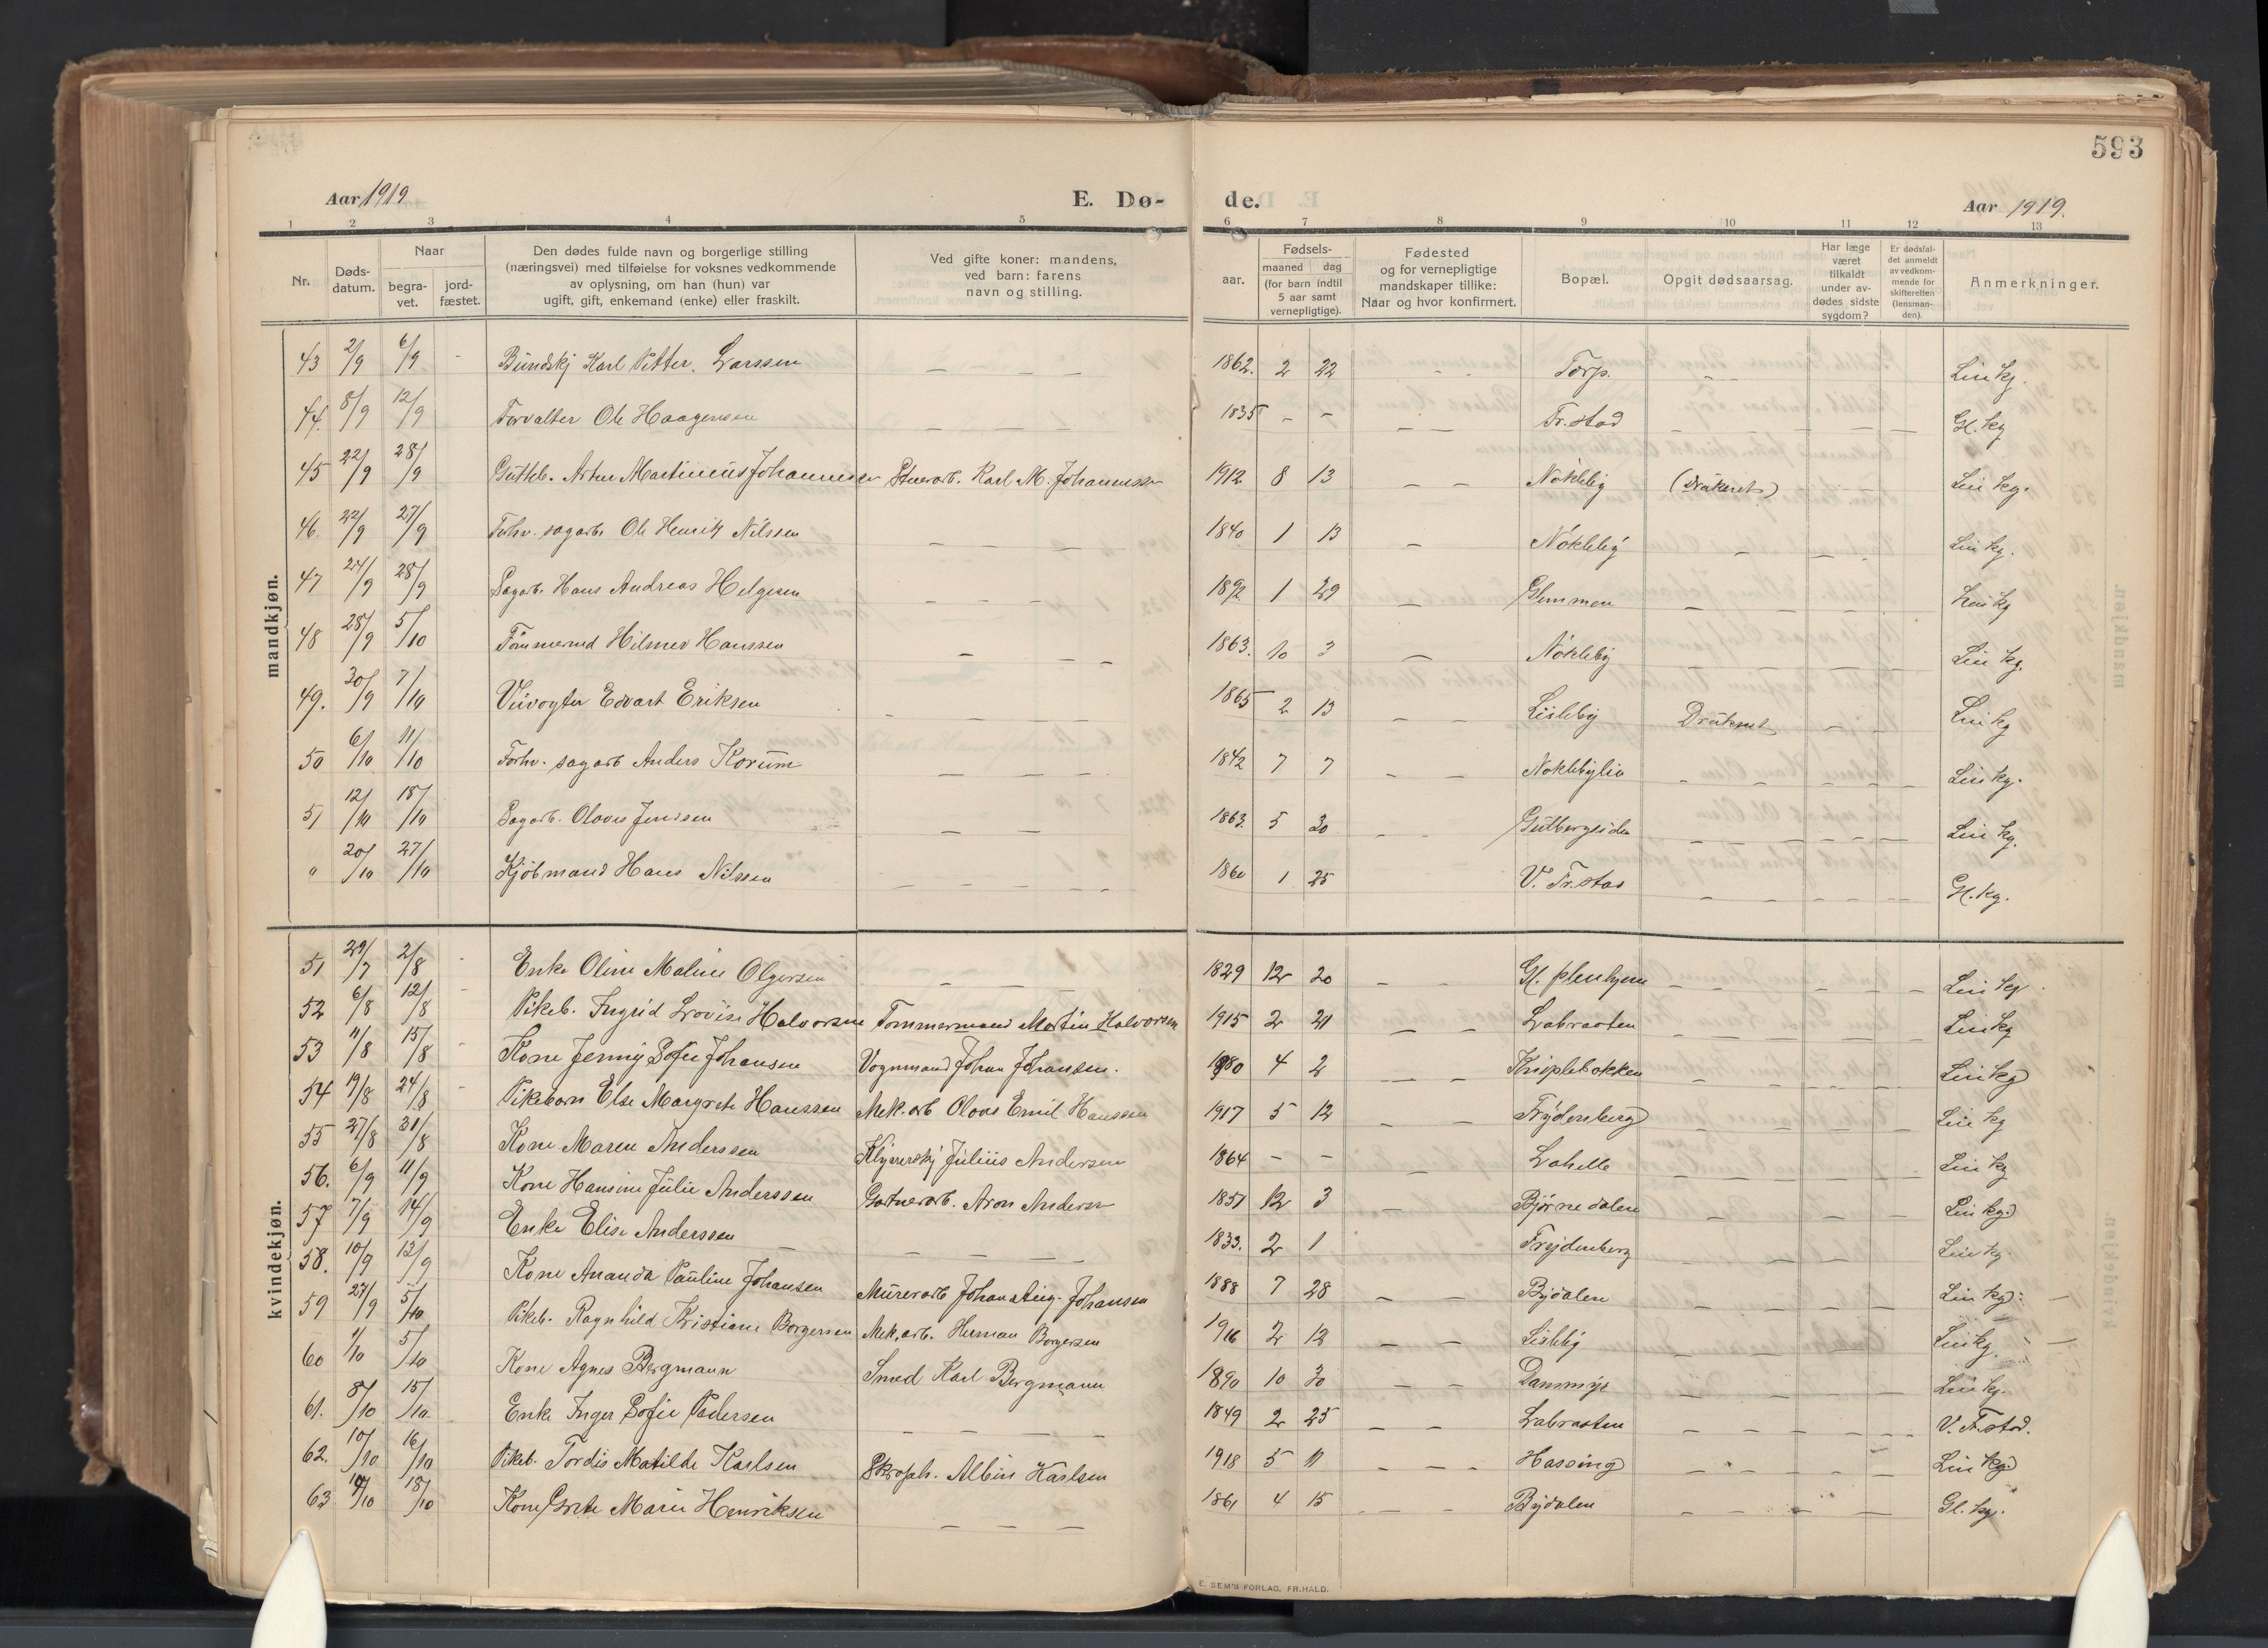 593
Aar 1919 E. Dø- de. Aar 1919.
1 2 3 4 5 6 7 8 9 10 11 12 13
Nr. Døds-datum. Naar begra-vet. jord-fæstet. Den dødes fulde navn og borgerlige stilling (næringsvei) med tilføielse for voksnes vedkommende av oplysning, om han (hun) var ugift, gift, enkemand (enke) eller fraskilt. Ved gifte koner: mandens, ved barn: farens navn og stilling. aar. Fødsels- maaned dag (for barn indtil 5 aar samt vernepligtige). Fødested og for vernepligtige mandskaper tillike: Naar og hvor konfirmert. Bopæl. Opgit dødsaarsag. Har læge været tilkaldt under av-dødes sidste sygdom? Er dødsfal-det anmeldt av vedkom-mende for skifteretten (lensman-den). Anmerkninger.
mandkjøn.
43 2/9 6/9 - Karl Petter Larssen 1862. 2 22 Torp. Lin kg.
44. 8/9 12/9 Forvalter Ole Haagensen 1835 - - Fr.stad Gl. kg
45 22/9 28/9 Gutteb. Artur Martinius Johannessen Karl M. Johannessen 1912 8 13 Nøkleby (Druknet) Lin kg.
46. 22/9 27/9 Forhv. sagarb Ole Henrik Nilssen 1840 1 13 Nøkleby Lin kg.
47 24/9 28/9 Sagarb. Hans Andreas Helgesen 1892 1 29 Glemmen Lin kg
48 28/9 5/10 Tømmermd Hilmer Hanssen 1863. 10 3 Nøkleby Lin kg.
49. 30/9 7/10 Veivogter Edvart Eriksen 1865 2 13 Lisleby Druknet Lin kg
50 6/10 11/10 Forhv. sagarb Anders Korum 1842 7 7 Nøklebylia Lin kg.
51 12/10 18/10 Sagarb. Olaves Jenssen 1863. 5 30 Gutbergsiden Lin kg.
" 20/10 27/10 Kjøbmand Hans Nilssen 1860 1 25 V. Fr.stad Gl. kg.
kvindekjøn.
51 29/7 2/8 - Enke Oline Maline Olgersen 1829 12 20 Gl. pleiehjem Lin kg.
52 6/8 12/8 - Pikeb. Ingrid Lovise Halvorsen Tømmermand Martin Halvorsen 1915 2 21 Labraaten Lin kg
53 11/8 15/8 - Kone Jenny Sofie Johansen Vognmand Johan Johansen. 1880 4 2 Kniplebakken Lin kg
54 19/8 24/8 - Pikebarn Else Margrete Hanssen Mek.arb Olaves Emil Hanssen 1917 5 12 Frydenberg Lin kg
55 27/8 31/8 Kone Maren Anderssen Julius Andersen 1864 - - Lahelle Lin kg
56. 6/9 11/9 Kone Hansine Julie Anderssen Gartnerarb. Aron Andersen 1851 12 3 Bjørnedalen Lin kg
57 7/9 14/9 Enke Elise Anderssen 1833. 2 1 Frydenberg Lin kg
58. 10/9 13/9 Kone Ananda Pauline Johansen Murerarb Johan Aug. Johansen 1888 7 28 Bydalen Lin kg.
59 27/9 5/10 Pikeb. Ragnhild Kristiane Borgersen Mek.arb. Herman Borgersen 1916 2 12 Lisleby Lin kg.
60 1/10 5/10 Kone Agnes Bergmann Smed Karl Bergmann 1890 10 30 Dammyr Lin kg.
61. 8/10 15/10 Enke Inger Sofie Pedersen 1849 2 25 Labraaten V. Fr.stad.
62. 10/10 16/10 Pikeb. Tordis Matilde Karlsen Albin Karlsen 1918 5 11 Hassing Lin kg
63 14/10 18/10 Kone Grete Marie Henriksen 1861 4 15 Bydalen Gl. kg.
E. SEM'S FORLAG, FR.HALD.